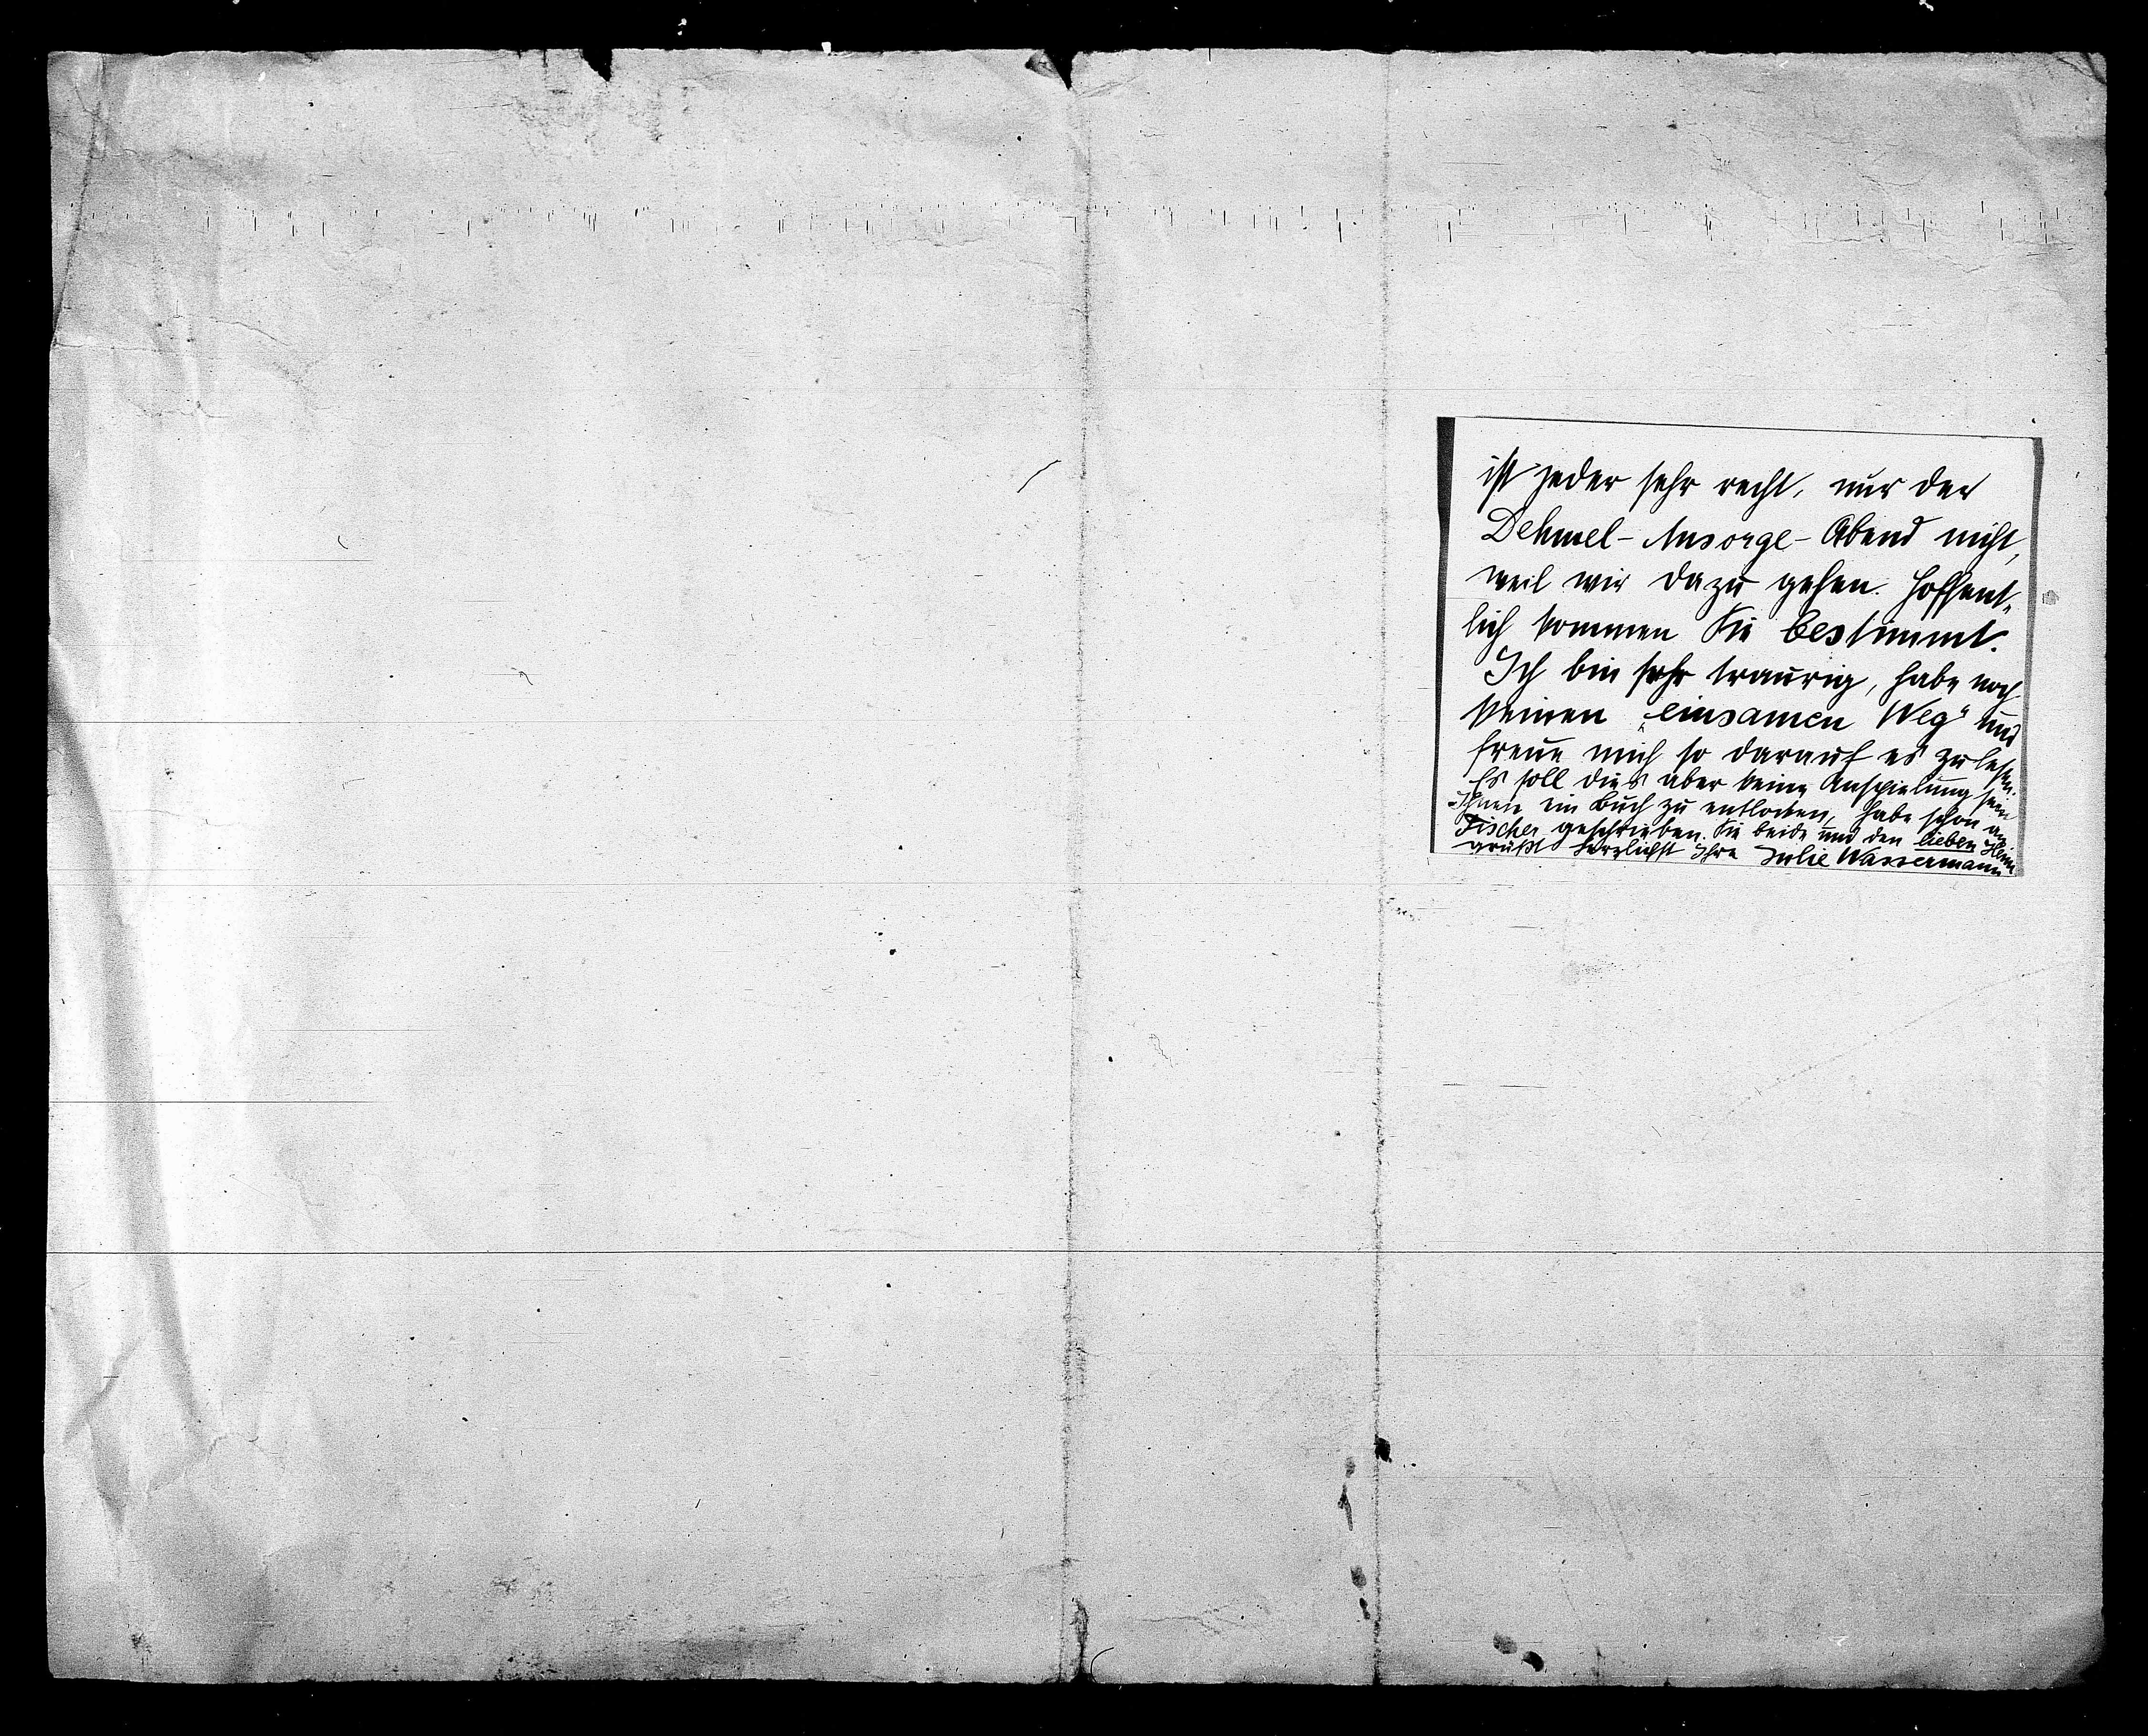 ist jeder sehr recht, nur der
Dehmel-Ansorge-Abend nicht,
weil wir dazu gehen. Hoffent„
lich kommen Sie bestimmt.
Ich bin sehr traurig, habe noch
keinen „einsamen Weg“ und
freue mich so darauf es zu lesen.
Es soll dies aber keine Anspielung sein
Ihnen ein Buch zu entlocken, habe schon an
Fischer geschrieben. Sie beide und den lieben Heini
grüßt herzlichst Ihre Julie Wassermann